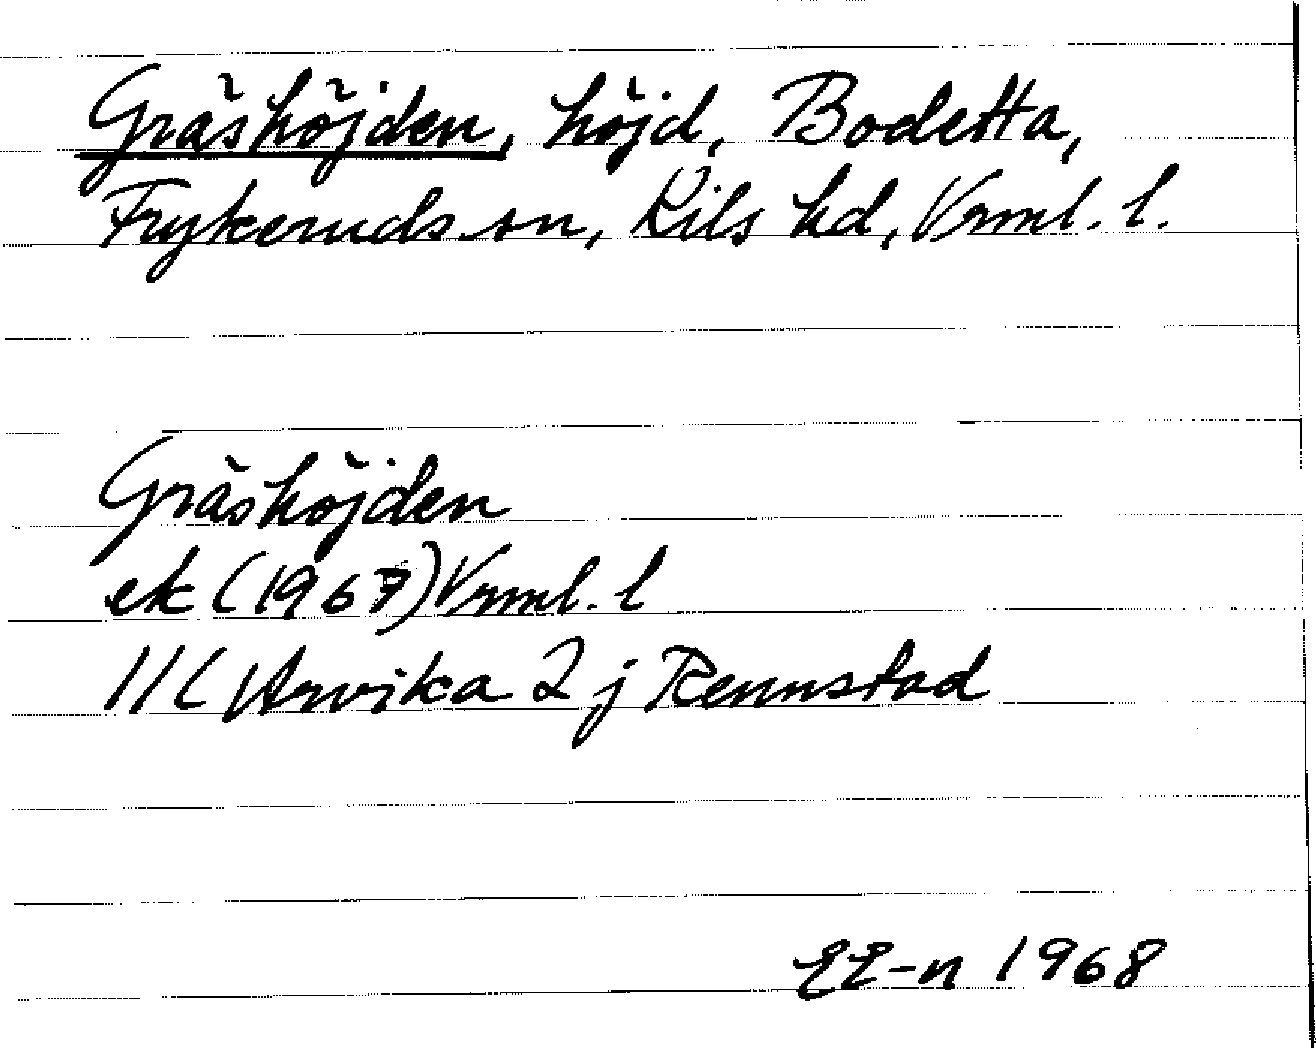 Gräshöjden, höjd, Bodetta,
Frykeruds sn, Kils hd, Vrml. l.
Gräshöjden
ek (1967) Vrml. l
11C Arvika 2 j Rennstad
EE-n 1968